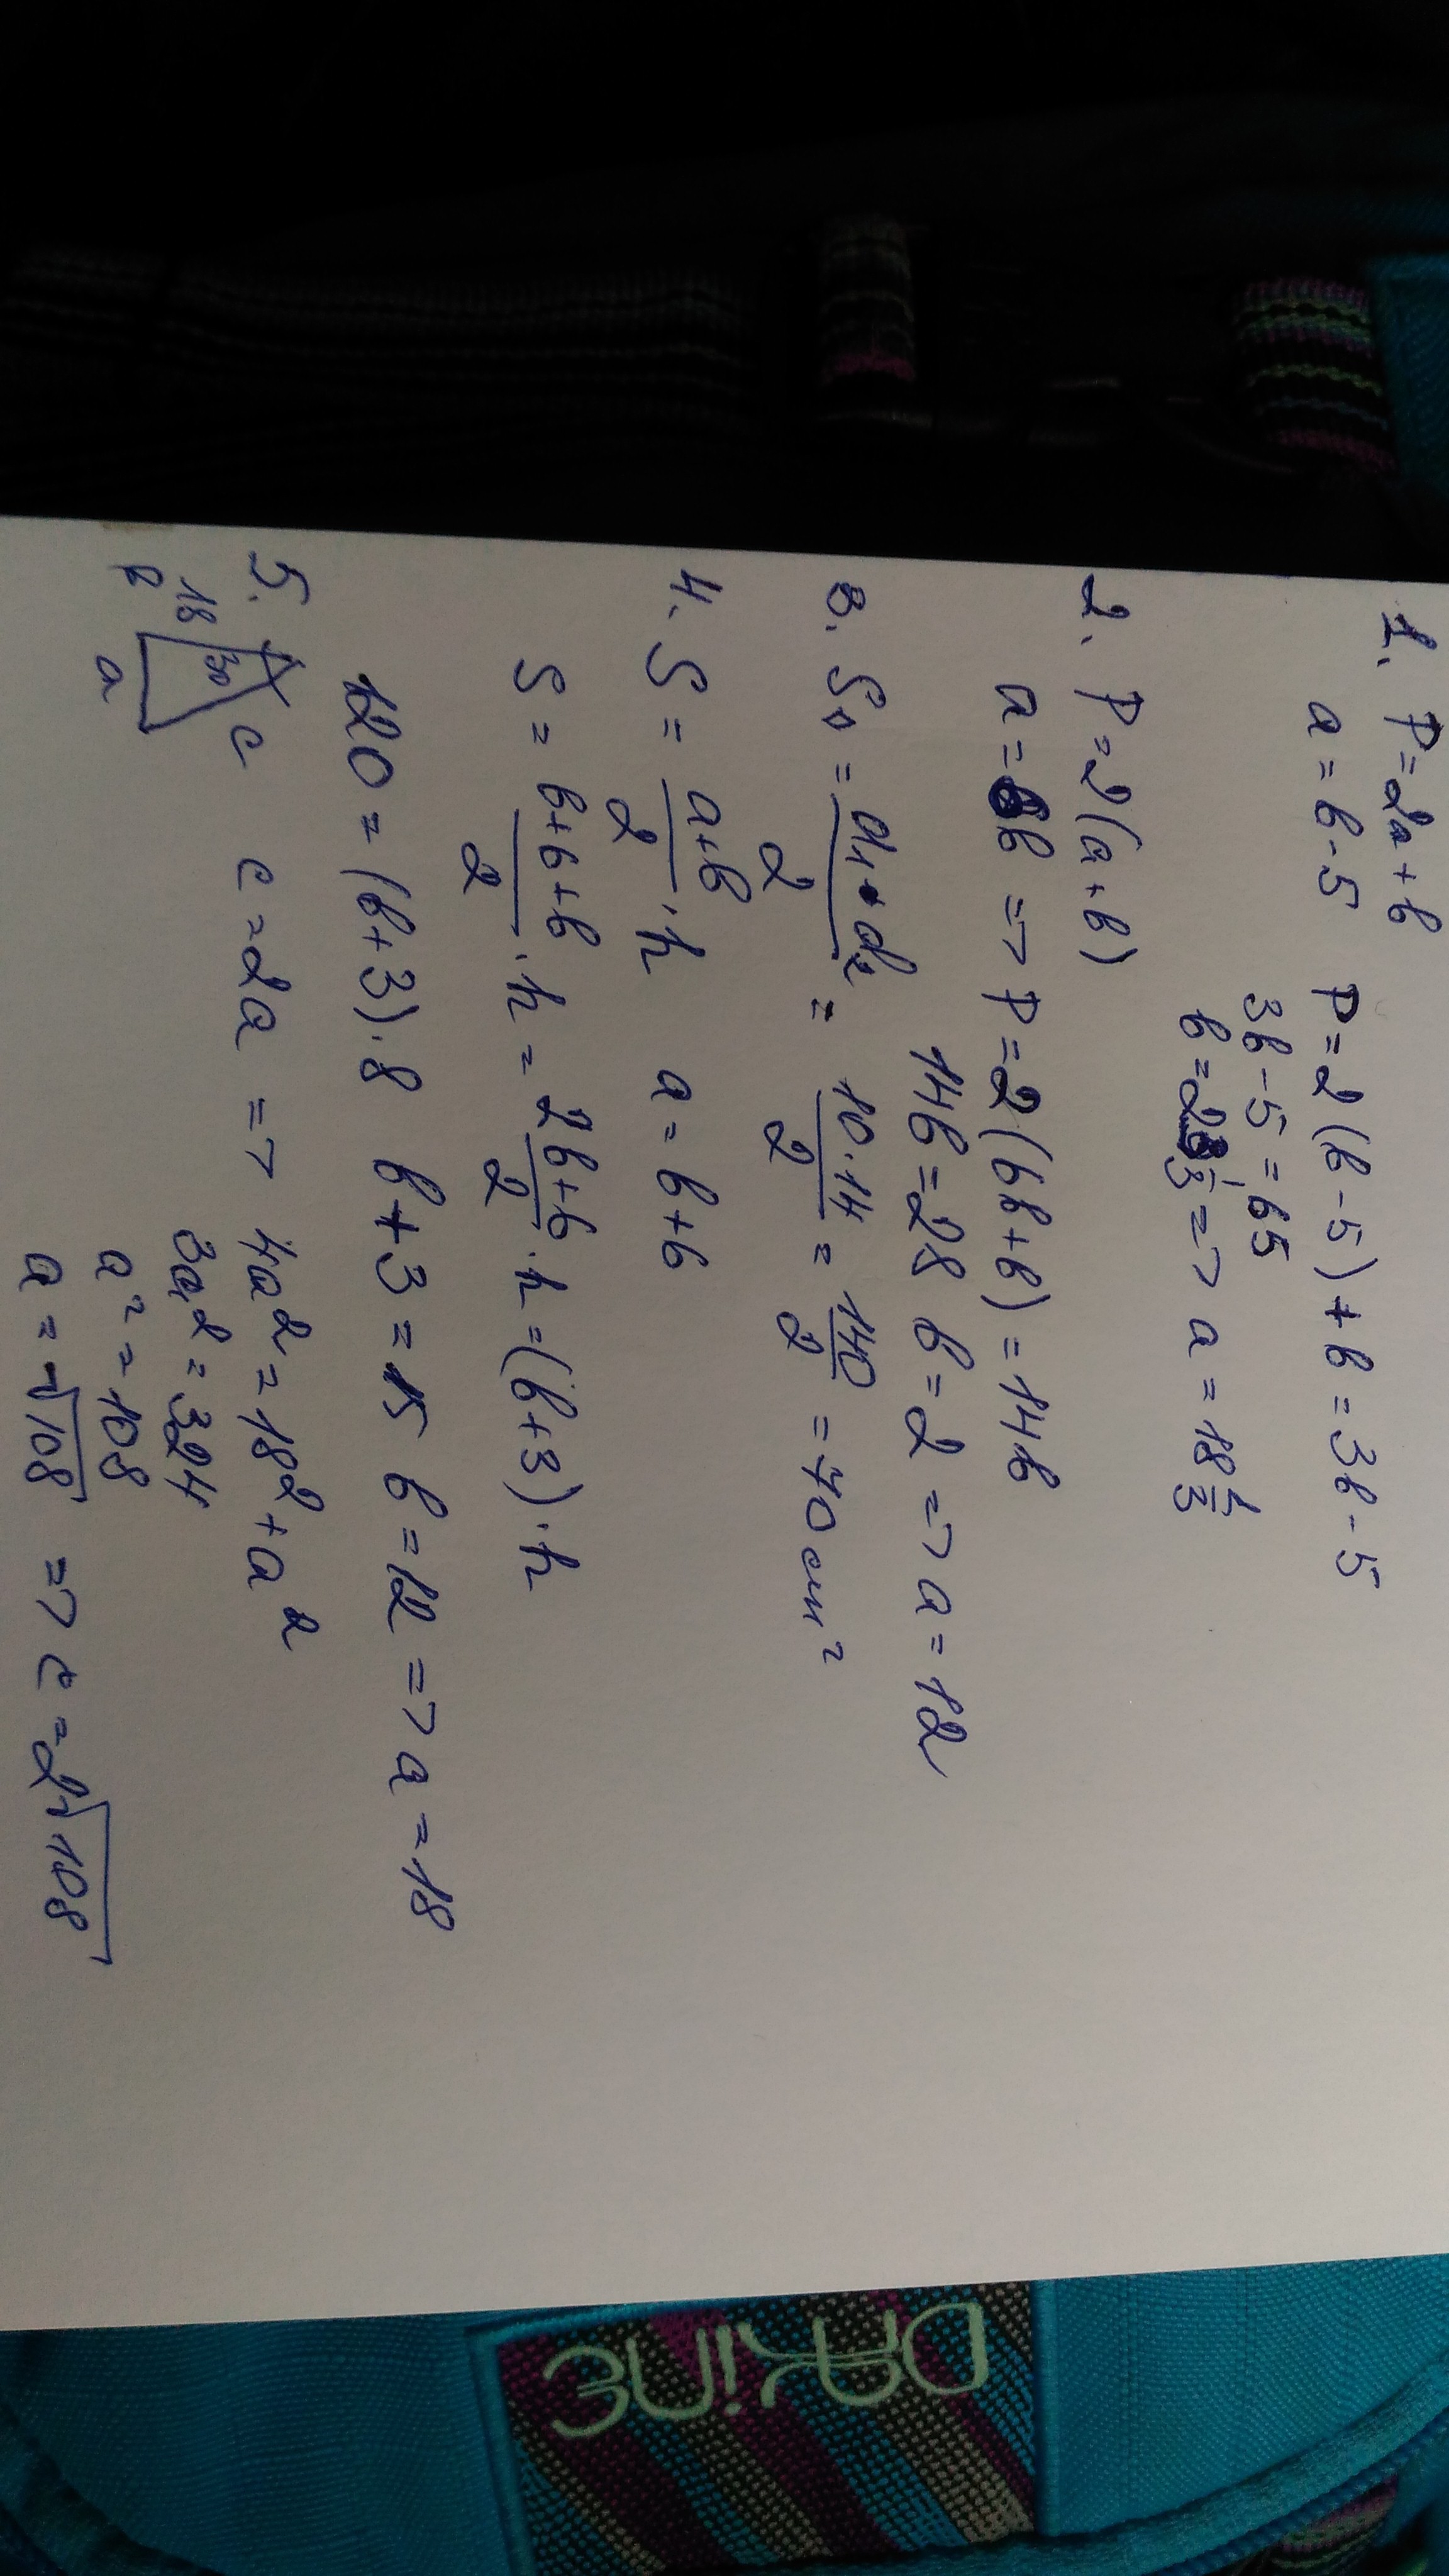 1. P=2a+b
a=b-5 P=2(b-5)+b=3b-5
3b-5=65
b=23 1/3 => a=18 1/3
2. P=2(a+b)
a=6b => P=2(6b+b)=14b
14b=28 b=2 => a=12
3. S◊ = d₁·d₂/2 = 10·14/2 = 140/2 = 70 см²
4. S = a+b/2 · h a=b+6
S = b+6+b/2 · h = 2b+6/2 · h = (b+3)·h
120=(b+3)·8 b+3=15 b=12 => a=18
5. 18 30 c b a c=2a => 4a²=18²+a²
3a²=324
a²=108
a=√108 => c=2√108
DAKINE